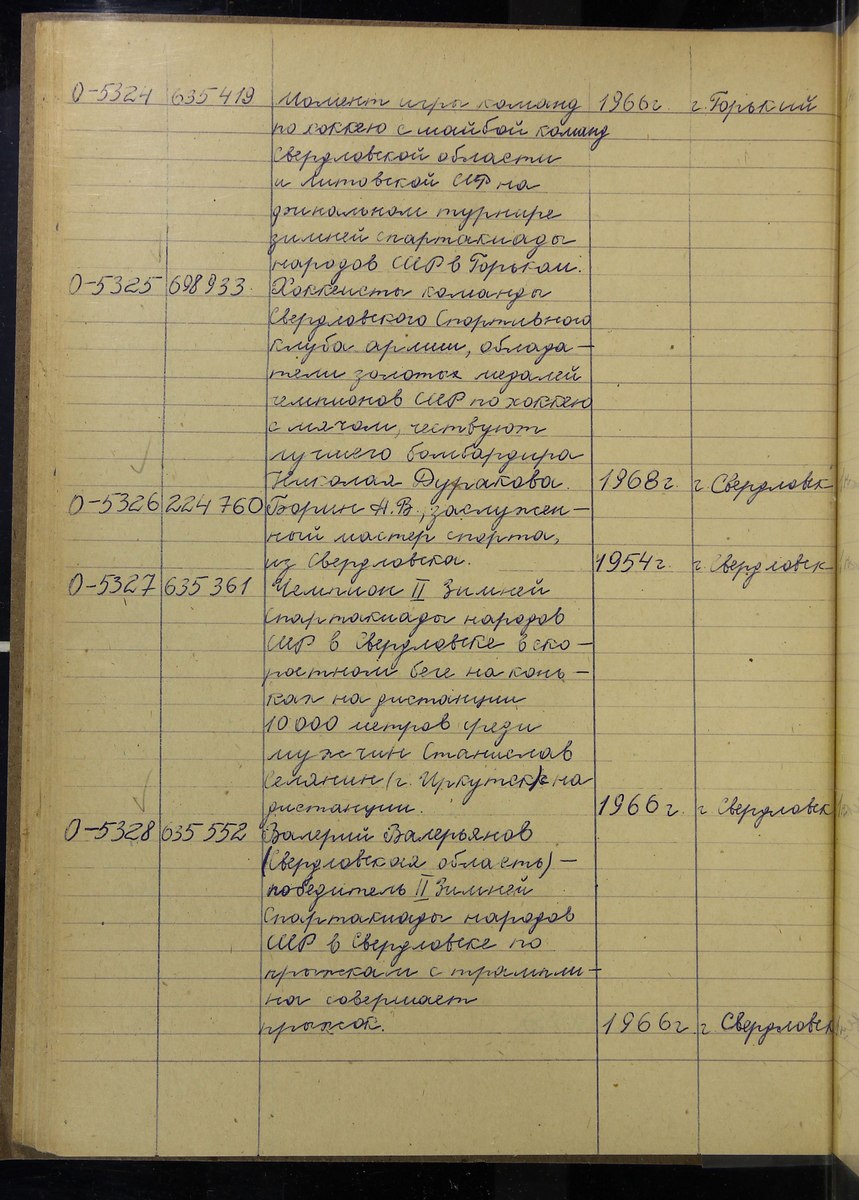 0-5324 635419 Момент игры команд 1966г. г. Горький
по хоккею с шайбой команд
Свердловской области
и Литовской ССР на
финальном турнире
зимней спартакиады
народов СССР в Горьком.
0-5325 698933 Хоккеисты команды
Свердловского Спортивного
клуба армии, облада-
тели золотых медалей
чемпионов СССР по хоккею
с мячом, чествуют
лучшего бомбардира
Николая Дуракова. 1968г. г. Свердловск
0-5326 224760 Борин А.В., заслужен-
ный мастер спорта,
из Свердловска. 1954г. г. Свердловск
0-5327 635361 Чемпион II Зимней
Спартакиады народов
СССР в Свердловске в ско-
ростном беге на конь-
ках на дистанции
10000 метров среди
мужчин Станислав
Селянин (г. Иркутск) на
дистанции. 1966г. г. Свердловск
0-5328 635552 Валерий Валерьянов
(Свердловская область) -
победитель II Зимней
Спартакиады народов
СССР в Свердловске по
прыжкам с трампли-
на совершает
прыжок. 1966г. г. Свердловск